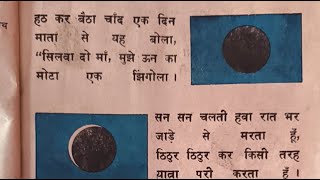 हठ कर बैठा चांद एक दिन
माता से यह बोला,
“सिलवा दो माँ, मुझे ऊन का
मोटा एक झिंगोला।
सन सन चलती हवा रात भर
जाड़े से मरता हूँ,
ठिठुर ठिठुर कर किसी तरह
यात्रा पूरी करता हूँ।